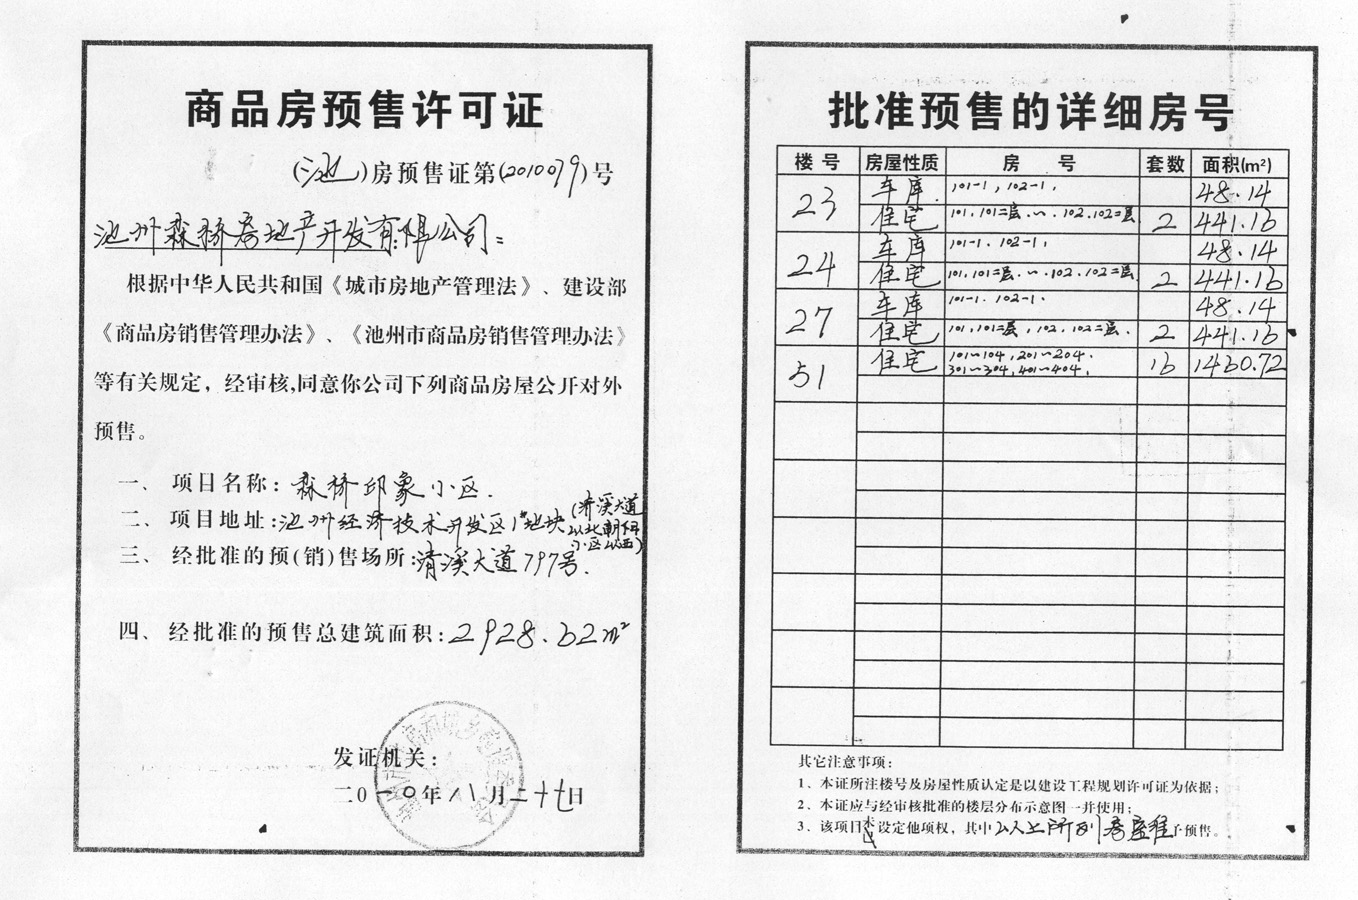 商品房预售许可证
(池)房预售证第(2010079)号
池州森桥房地产开发有限公司:
根据中华人民共和国《城市房地产管理法》、建设部
《商品房销售管理办法》、《池州市商品房销售管理办法》
等有关规定，经审核,同意你公司下列商品房屋公开对外
预售。
一、项目名称: 森桥印象小区.
二、项目地址:池州经济技术开发区1#地块(清溪大道
以北朝阳
小区以西)
三、经批准的预(销)售场所:清溪大道797号.
四、经批准的预售总建筑面积:2928.62m²
发证机关:
二0一0年八月二十七日
批准预售的详细房号
楼号 房屋性质 房号 套数 面积(m²)
23 车库 101-1, 102-1, 48.14
住宅 101,101二层.~.102.102二层 2 441.16
24 车库 101-1.102-1, 48.14
住宅 101,101二层.~.102.102二层. 2 441.16
27 车库 101-1.102-1. 48.14
住宅 101,101二层,102,102二层. 2 441.16
51 住宅 101~104,201~204. 16 1460.72
301~304,401~404.
其它注意事项:
1、本证所注楼号及房屋性质认定是以建设工程规划许可证为依据;
2、本证应与经审核批准的楼层分布示意图一并使用;
3、该项目未设定他项权，其中以上所列房屋准予预售。